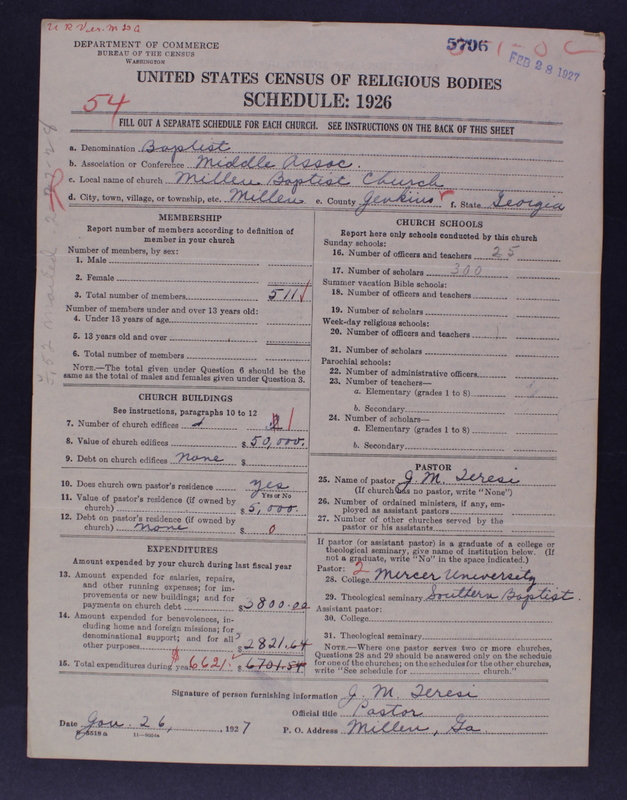 DEPARTMENT OF COMMERCE
BUREAU OF THE CENSUS
WASHINGTON
5706
FEB 28 1927
UNITED STATES CENSUS OF RELIGIOUS BODIES
SCHEDULE: 1926
54
FILL OUT A SEPARATE SCHEDULE FOR EACH CHURCH. SEE INSTRUCTIONS ON THE BACK OF THIS SHEET
a. Denomination Baptist
b. Association or Conference Middle Assoc.
c. Local name of church Millen Baptist Church
d. City, town, village, or township, etc. Millen e. County Jenkins f. State Georgia
MEMBERSHIP
Report number of members according to definition of
member in your church
Number of members, by sex:
1. Male
2. Female
3. Total number of members 511
Number of members under and over 13 years old:
4. Under 13 years of age
5. 13 years old and over
6. Total number of members
NOTE.—The total given under Question 6 should be the
same as the total of males and females given under Question 3.
CHURCH BUILDINGS
See instructions, paragraphs 10 to 12
7. Number of church edifices 1
8. Value of church edifices $50,000.
9. Debt on church edifices None $
10. Does church own pastor's residence yes
Yes or No
11. Value of pastor's residence (if owned by
church) $5,000.
12. Debt on pastor's residence (if owned by
church) none $ 0
EXPENDITURES
Amount expended by your church during last fiscal year
13. Amount expended for salaries, repairs,
and other running expenses; for im-
provements or new buildings; and for
payments on church debt $3800.00
14. Amount expended for benevolences, in-
cluding home and foreign missions; for
denominational support; and for all
other purposes $2821.64
15. Total expenditures during year $6621. $6701.54
CHURCH SCHOOLS
Report here only schools conducted by this church
Sunday schools:
16. Number of officers and teachers 25
17. Number of scholars 300
Summer vacation Bible schools:
18. Number of officers and teachers
19. Number of scholars
Week-day religious schools:
20. Number of officers and teachers
21. Number of scholars
Parochial schools:
22. Number of administrative officers
23. Number of teachers—
a. Elementary (grades 1 to 8)
b. Secondary
24. Number of scholars—
a. Elementary (grades 1 to 8)
b. Secondary
PASTOR
25. Name of pastor J. M. Teresi
(If church has no pastor, write "None")
26. Number of ordained ministers, if any, em-
ployed as assistant pastors
27. Number of other churches served by the
pastor or his assistants
If pastor (or assistant pastor) is a graduate of a college or
theological seminary, give name of institution below. (If
not a graduate, write "No" in the space indicated.)
Pastor: 2
28. College Mercer University
29. Theological seminary Southern Baptist.
Assistant pastor:
30. College
31. Theological seminary
NOTE.—Where one pastor serves two or more churches,
Questions 28 and 29 should be answered only on the schedule
for one of the churches; on the schedules for the other churches,
write "See schedule for church."
Signature of person furnishing information J. M. Teresi
Official title Pastor
Date Jan. 26, 1927 P. O. Address Millen, Ga.